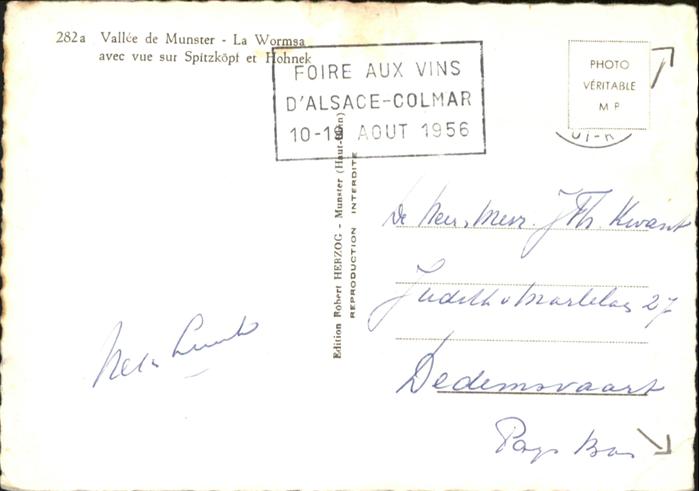 282a Vallée de Munster - La Wormsa
avec vue sur Spitzköpf et Hohnek
FOIRE AUX VINS
D'ALSACE-COLMAR
10-19 AOUT 1956
PHOTO
VÉRITABLE
M P
Edition Robert HERZOG - Munster (Haut-Rhin)
REPRODUCTION INTERDITE
De Heer, Mevr. J Th. Kwant
Judith v Marlelaan 27
Dedemsvaart
Pays Bas